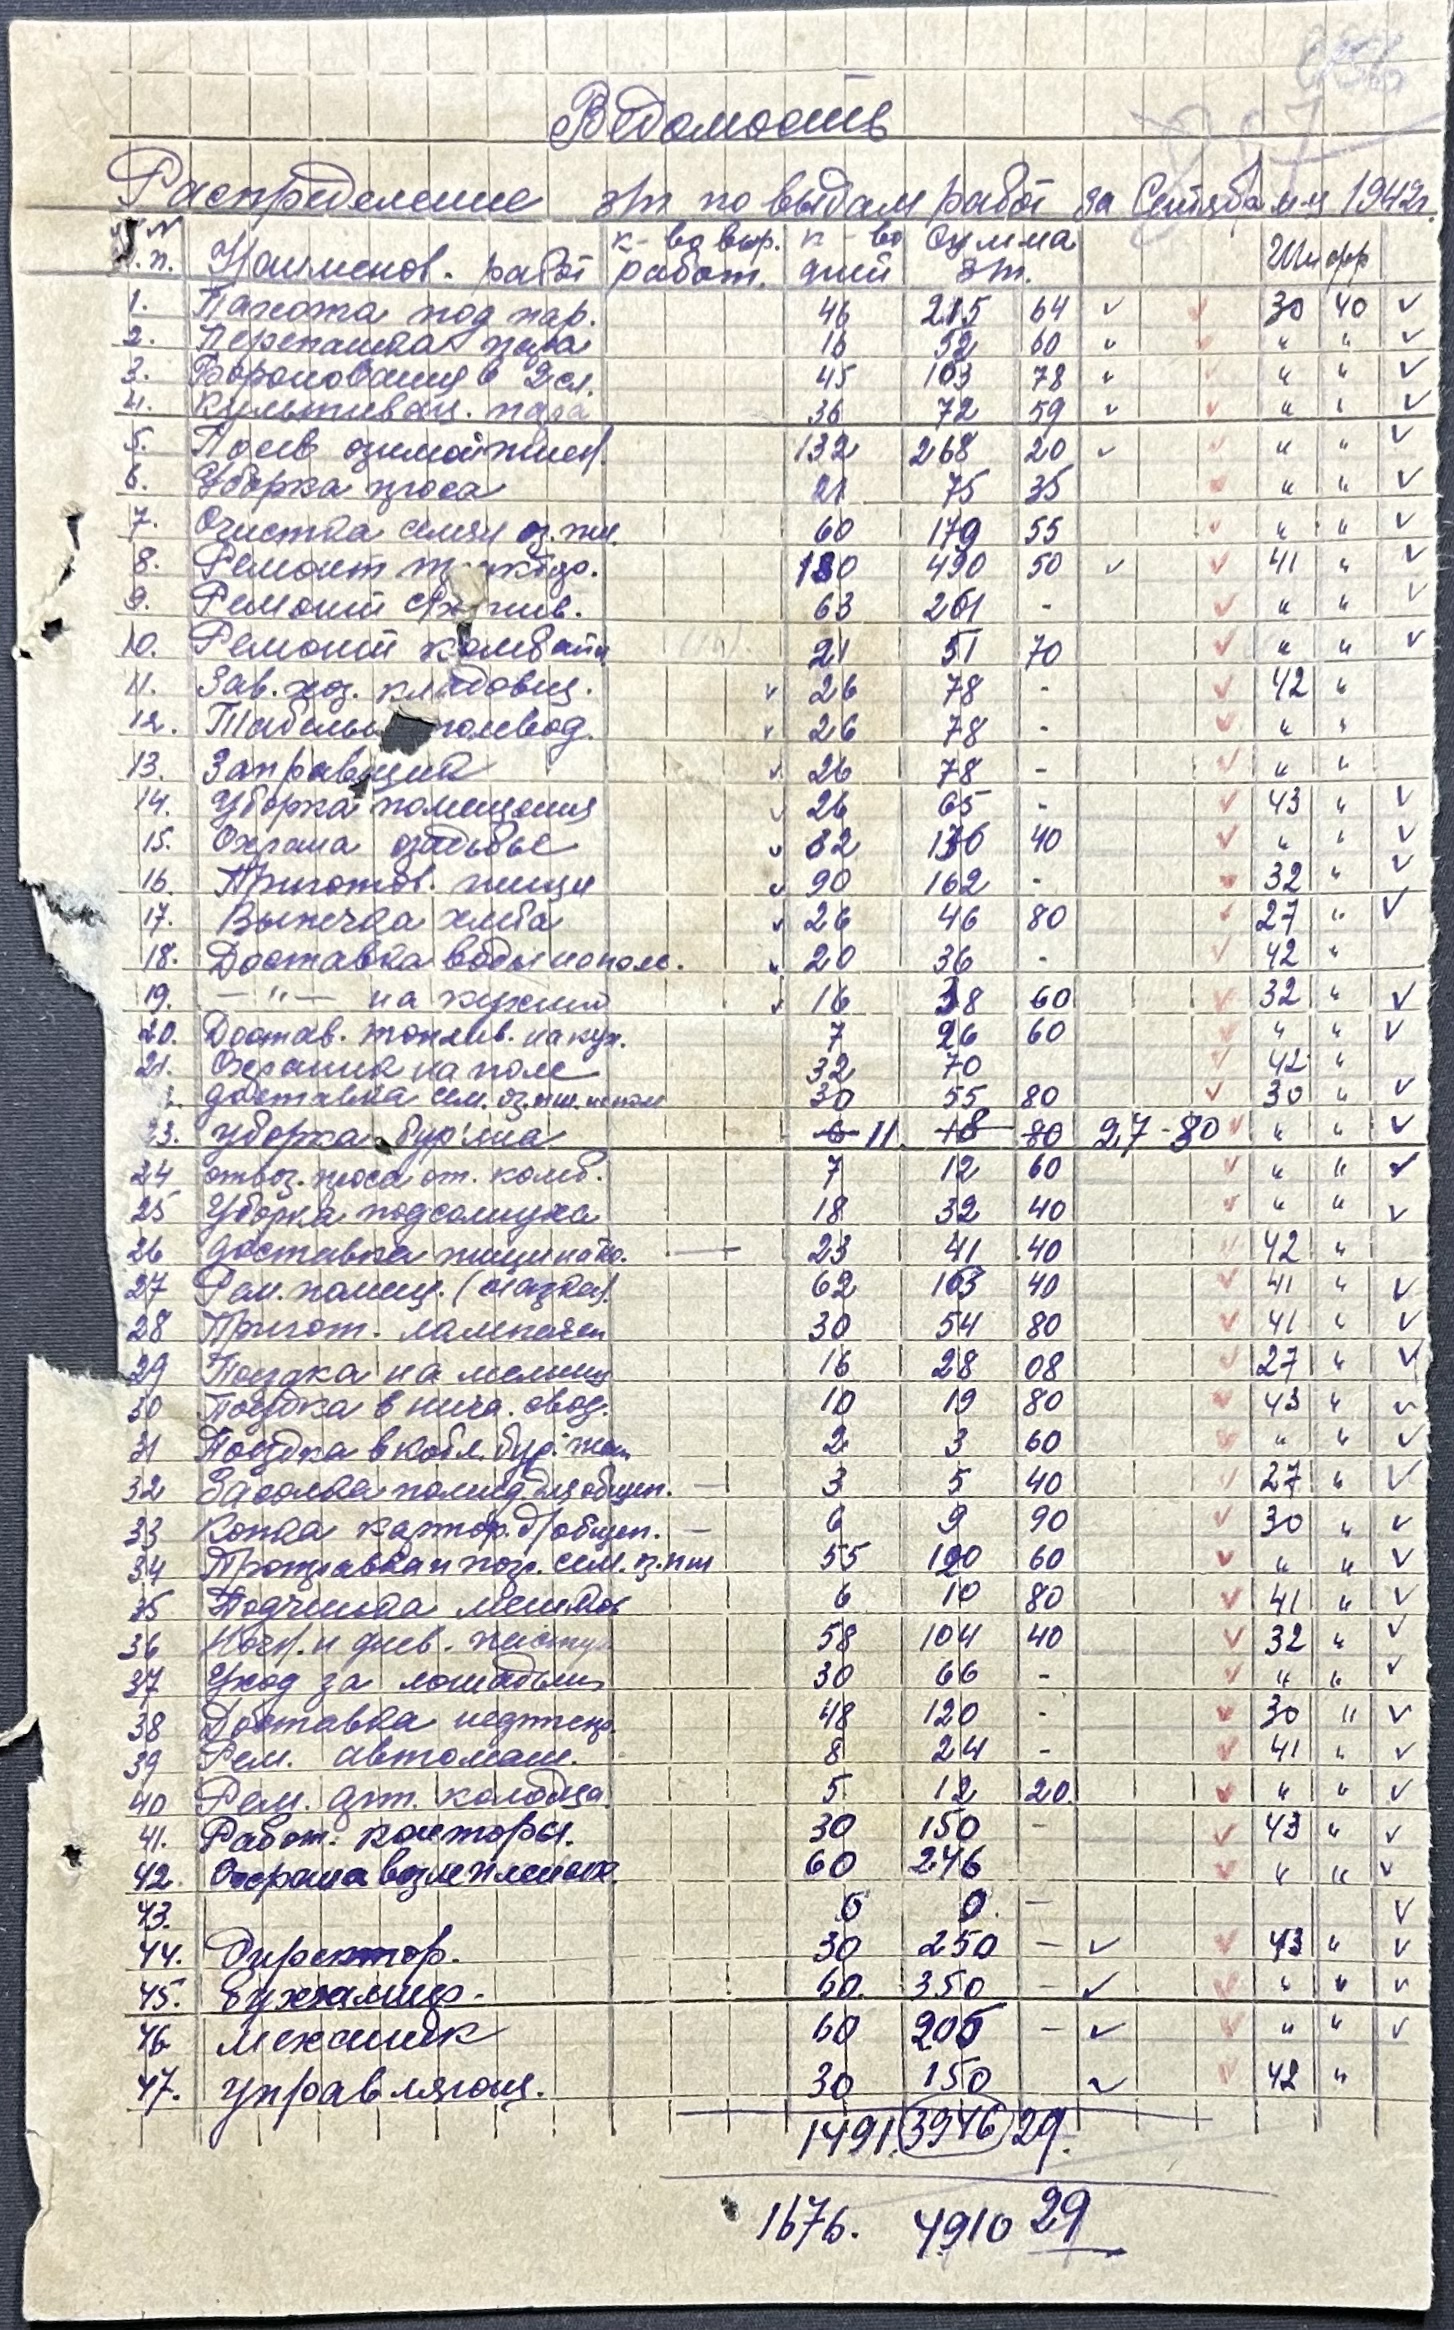 Ведомость
Распределение з/пл по видам работ за Сентябрь м-ц 1942 г.
№№ п.п. Наименов. работ к-во вып. работ. к-во дней Сумма з/п. Шифр
1. Пахота под пар. 46 215 64 ✓ ✓ 30 40 ✓
2. Перепашка пара 16 52 60 " ✓ " " ✓
3. Боронования в 2 сл. 45 103 78 " ✓ " " ✓
4. Культивац. пара 36 72 59 " ✓ " " ✓
5. Посев озимой пшен. 132 268 20 ✓ ✓ " " ✓
6. Уборка проса 21 75 35 ✓ " " ✓
7. Очистка семян оз. пш. 60 179 55 ✓ " " ✓
8. Ремонт 130 490 50 ✓ ✓ 41 " ✓
9. Ремонт 63 261 - ✓ " " ✓
10. Ремонт комбайн 21 51 70 ✓ " " ✓
11. Зав. хоз. кладовщ. ✓ 26 78 - ✓ 42 "
12. полевод. ✓ 26 78 - ✓ " "
13. Заправщик ✓ 26 78 - ✓ " "
14. Уборка помещения ✓ 26 65 - ✓ 43 " ✓
15. Охрана усадьбы ✓ 62 136 40 ✓ " " ✓
16. Приготов. пищи ✓ 90 162 - ✓ 32 " ✓
17. Выпечка хлеба ✓ 26 46 80 ✓ 27 " ✓
18. Доставка воды на поле. ✓ 20 36 - ✓ 42 "
19. — " — на кухню ✓ 16 38 60 ✓ 32 " ✓
20. Достав. топлив. на кух. 7 26 60 ✓ " " ✓
21. Охрана на поле 32 70 ✓ 42 "
доставка сем. оз. пш. 30 55 80 ✓ 30 " ✓
23. уборка бурьяна 6 11 18 80 27-80 ✓ " " ✓
24 отвоз. проса от. комб. 7 12 60 ✓ " " ✓
25 Уборка подсолнуха 18 32 40 ✓ " " ✓
26 доставка пищи на по. — 23 41 40 42 "
27 Рем. помещ. (мазка). 62 163 40 ✓ 41 " ✓
28 Пригот. 30 54 80 ✓ 41 " ✓
29 Поездка на мельниц 16 28 08 ✓ 27 " ✓
30 Поездка в 10 19 80 ✓ 43 " ✓
31 Поездка в 2 3 60 ✓ " " ✓
32 Засолка помид. для общеп. — 3 5 40 27 " ✓
33 Копка картоф. д/общеп. — 6 9 90 30 " ✓
34 Протравка и сем. 55 120 60 ✓ " " ✓
35 Подчинка мешков 6 10 80 ✓ 41 " ✓
36 Ночн. и днев. пастух 58 104 40 ✓ 32 " ✓
37 Уход за лошадьми 30 66 - ✓ " " ✓
38 Доставка 48 120 - ✓ 30 " ✓
39 Рем. автомаш. 8 24 - ✓ 41 " ✓
40 Рем. арт. колодца 5 12 20 ✓ " " ✓
41. Работ. конторы. 30 150 - ✓ 43 " ✓
42. Охрана 60 246 ✓ " " ✓
43. 0 0. — ✓
44. Директор. 30 250 — ✓ ✓ 43 " ✓
45. Бухгалтер. 60. 350 — ✓ ✓ " " ✓
46 механик 60 205 — ✓ ✓ " " ✓
47. управляющ. 30 150 ✓ ✓ 42 "
1491. 3946 29.
1676. 4910 29